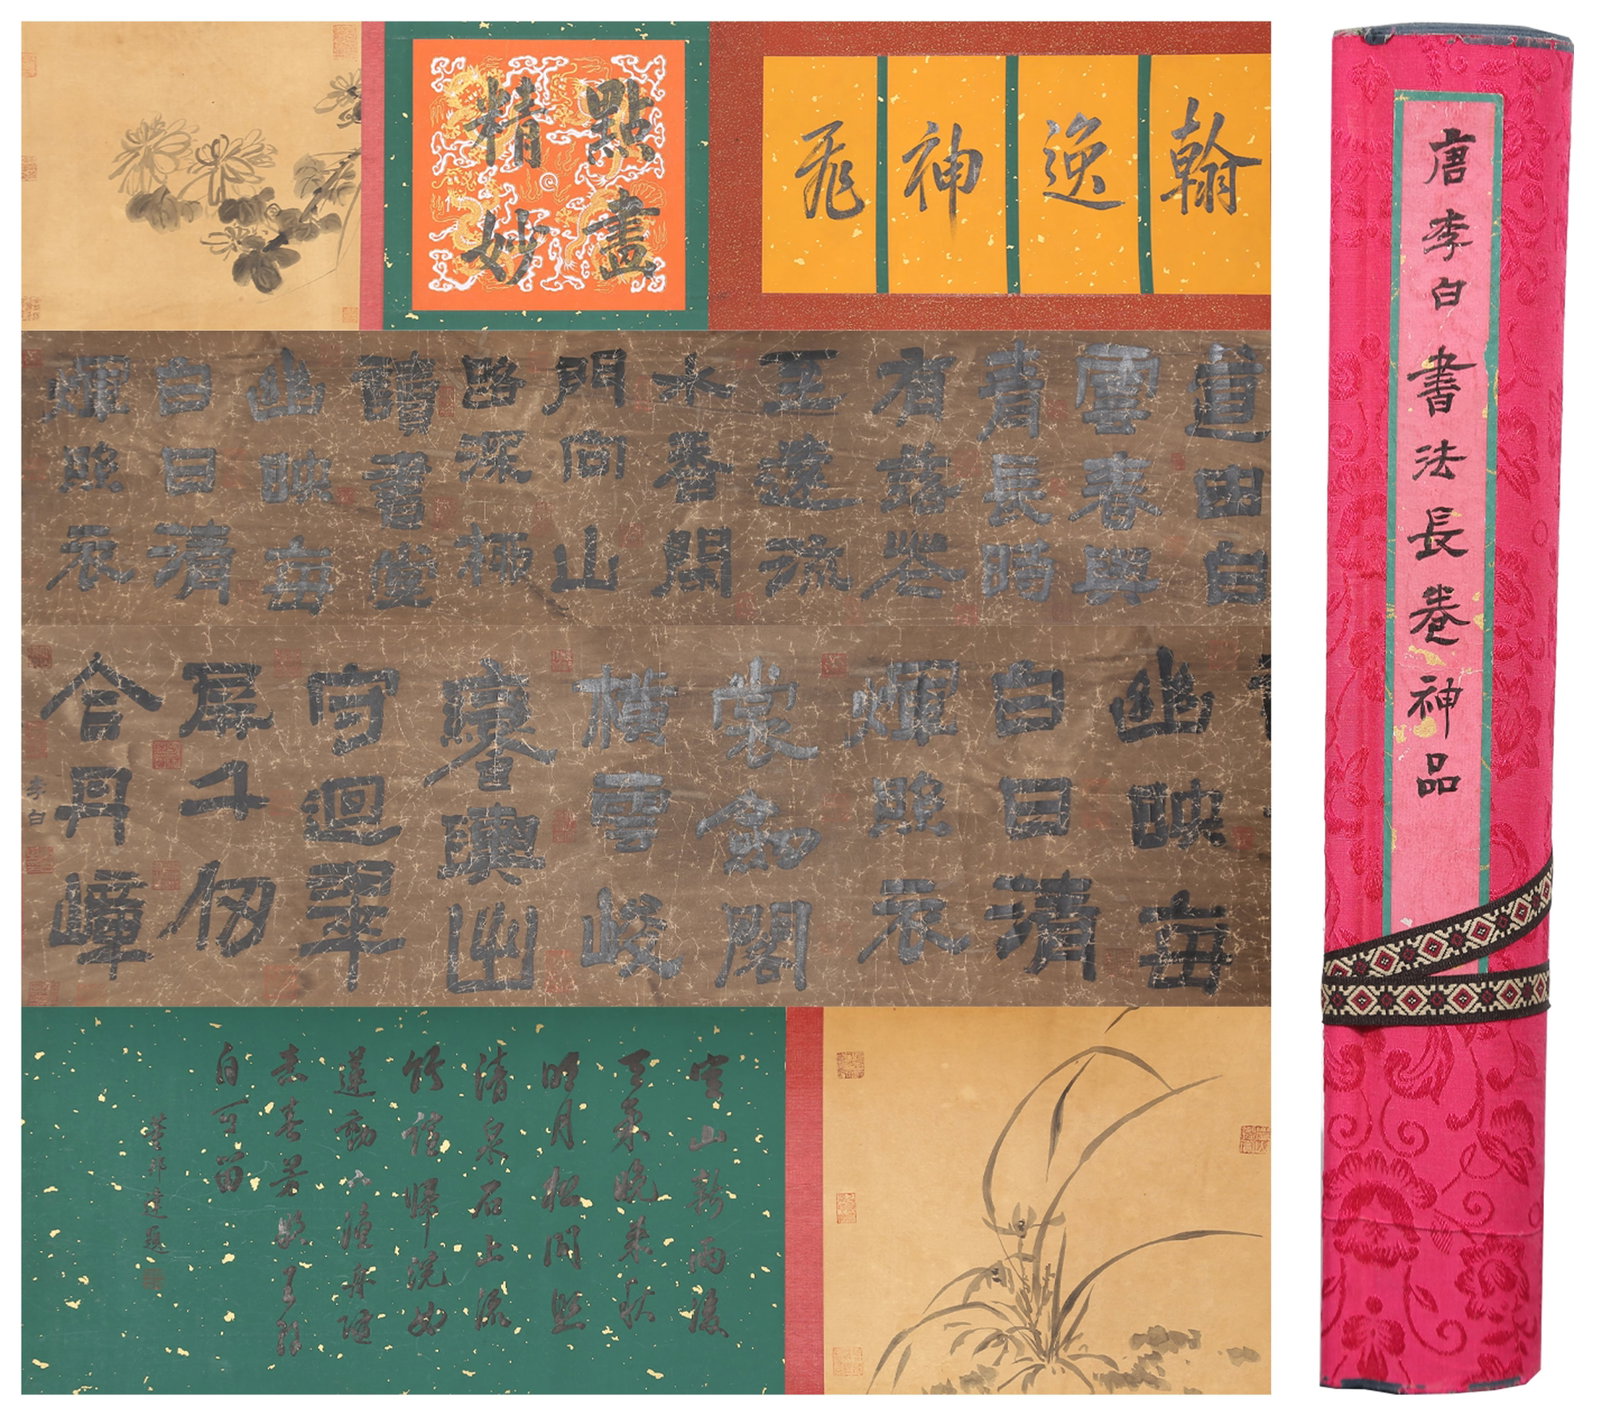 翰逸神飛
點畫
精妙
道由白
雲春與
青長時
有落花
至遠流
水香閑
門向山
路深柳
讀書堂
幽映每
白日清
煇照衣
幽映每
白日清
煇照衣
裳劍閣
橫雲峻
鑾輿出
守迴翠
屏千仞
合丹嶂
李白
空山新雨後
天氣晚來秋
明月松間照
清泉石上流
竹喧歸浣女
蓮動下漁舟隨
意春芳歇王孫
自可留
董邦達題
唐李白書法長卷神品